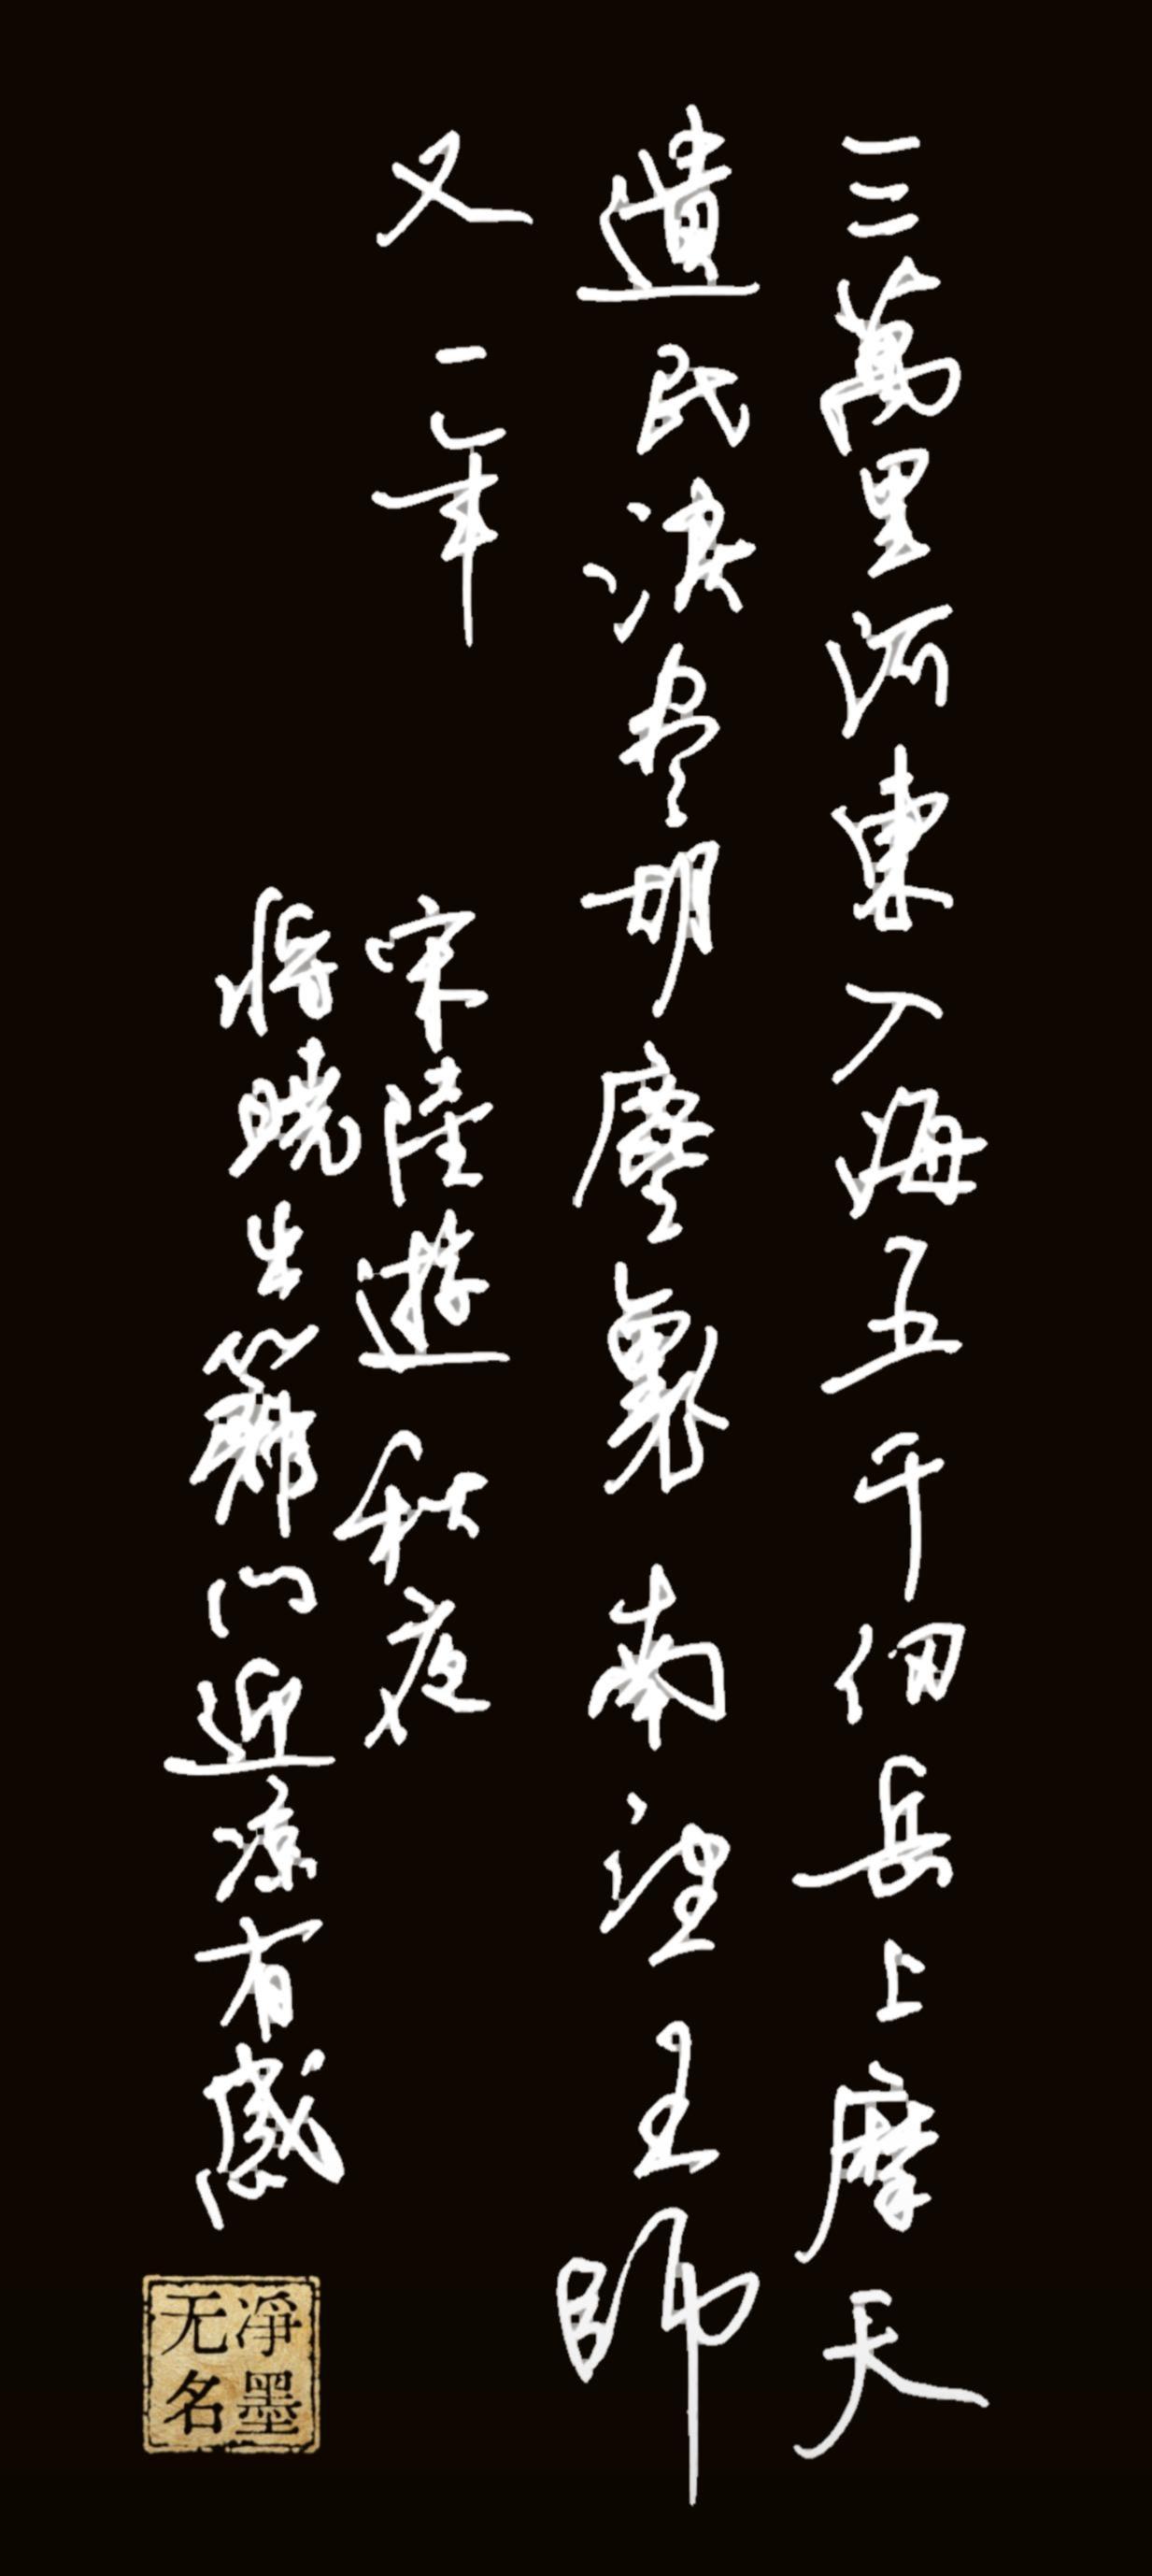 三萬里河東入海五千仞岳上摩天
遺民淚盡胡塵裏南望王師
又一年
宋陸遊秋夜
將曉出籬門迎涼有感
淨墨
无名